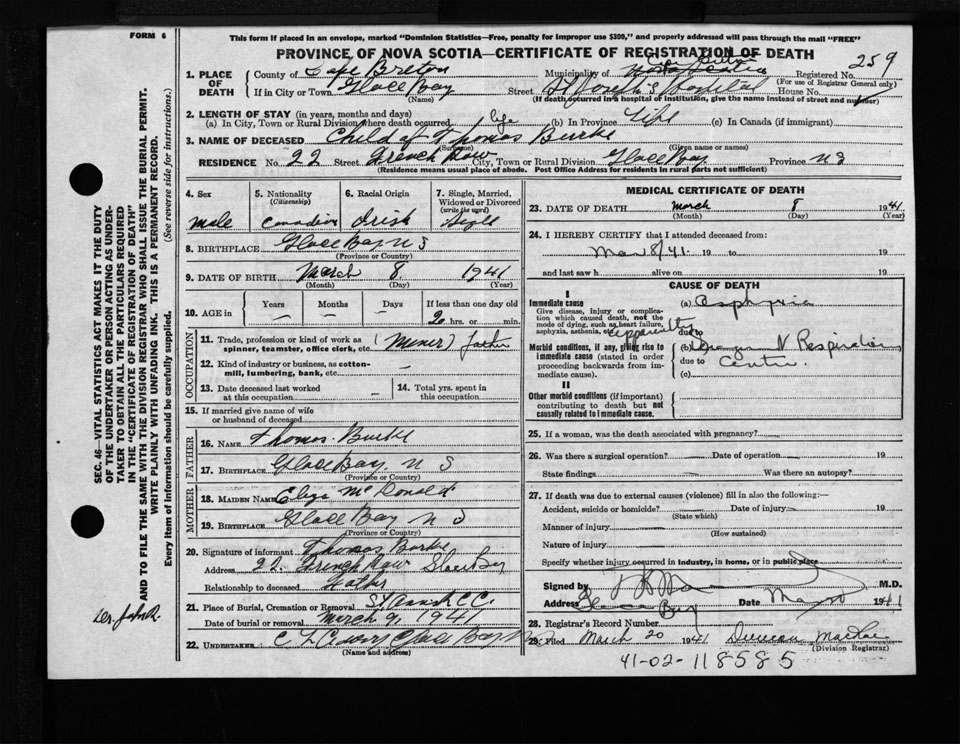 FORM 6
This form if placed in an envelope, marked "Dominion Statistics—Free, penalty for improper use $300," and properly addressed will pass through the mail "FREE"
PROVINCE OF NOVA SCOTIA—CERTIFICATE OF REGISTRATION OF DEATH
259
1. PLACE OF DEATH
County of Cape Breton Municipality of Registered No.
(For use of Registrar General only)
If in City or Town Glace Bay Street St Joseph's Hospital House No.
(Name) (If death occurred in a hospital or institution, give the name instead of street and number)
2. LENGTH OF STAY (in years, months and days)
(a) In City, Town or Rural Division where death occurred life (b) In Province Life (c) In Canada (if immigrant)
3. NAME OF DECEASED Child of Thomas Burke
(Surname) (Given name or names)
RESIDENCE No. 22 Street French Row City, Town or Rural Division Glace Bay Province N S
(Residence means usual place of abode. Post Office Address for residents in rural parts not sufficient)
4. Sex
male
5. Nationality
(Citizenship)
Canadian
6. Racial Origin
Irish
7. Single, Married, Widowed or Divorced
(write the word)
Single
8. BIRTHPLACE Glace Bay N S
(Province or Country)
9. DATE OF BIRTH March 8 1941
(Month) (Day) (Year)
10. AGE in
Years
Months
Days
If less than one day old
2 hrs. or min.
OCCUPATION
11. Trade, profession or kind of work as spinner, teamster, office clerk, etc. (Miner) father
12. Kind of industry or business, as cotton-mill, lumbering, bank, etc.
13. Date deceased last worked at this occupation
14. Total yrs. spent in this occupation
15. If married give name of wife or husband of deceased
FATHER
16. Name Thomas Burke
17. Birthplace Glace Bay N S
(Province or Country)
MOTHER
18. Maiden Name Eliza McDonald
19. Birthplace Glace Bay N S
(Province or Country)
20. Signature of informant Thomas Burke
Address 22 French Row Glace Bay
Relationship to deceased Father
21. Place of Burial, Cremation or Removal
Date of burial or removal March 9, 1941
22. UNDERTAKER: Glace Bay
(Name and address)
MEDICAL CERTIFICATE OF DEATH
23. DATE OF DEATH March 8 1941
(Month) (Day) (Year)
24. I HEREBY CERTIFY that I attended deceased from:
Mar 8/41 19 to 19
and last saw h alive on 19
CAUSE OF DEATH
I
Immediate cause
Give disease, injury or complication which caused death, not the mode of dying, such as heart failure, asphyxia, asthenia, etc.
(a) Asphyxia
due to
Morbid conditions, if any, giving rise to immediate cause (stated in order proceeding backwards from immediate cause).
(b) Respiratory
due to Centre.
(c)
II
Other morbid conditions (if important) contributing to death but not causally related to immediate cause.
25. If a woman, was the death associated with pregnancy?
26. Was there a surgical operation? Date of operation 19
State findings Was there an autopsy?
27. If death was due to external causes (violence) fill in also the following:—
Accident, suicide or homicide? Date of injury 19
(State which)
Manner of injury
(How sustained)
Nature of injury
Specify whether injury occurred in industry, in home, or in public place
Signed by M.D.
Address Glace Bay Date 1941
28. Registrar's Record Number
29. Filed March 20 1941 Duncan MacRae
(Division Registrar)
41-02-118585
SEC. 46—VITAL STATISTICS ACT MAKES IT THE DUTY
OF THE UNDERTAKER OR PERSON ACTING AS UNDERTAKER
TO OBTAIN ALL THE PARTICULARS REQUIRED
IN THE "CERTIFICATE OF REGISTRATION OF DEATH"
AND TO FILE THE SAME WITH THE DIVISION REGISTRAR WHO SHALL ISSUE THE BURIAL PERMIT.
WRITE PLAINLY WITH UNFADING INK. THIS IS A PERMANENT RECORD.
Every item of Information should be carefully supplied. (See reverse side for instructions.)